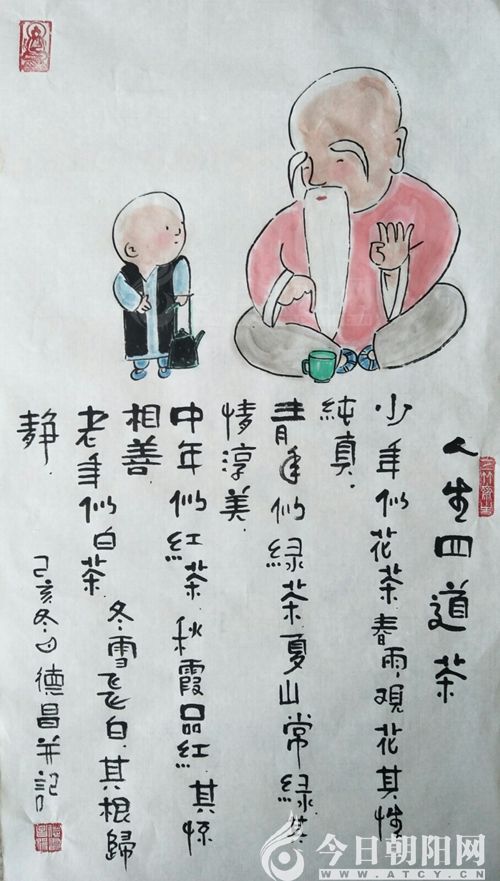 人生四道茶
少年似花茶春雨观花其性
純真.
青年似绿茶夏山常绿其
情淳美.
中年似紅茶.秋霞品紅.其悰
相善
老年似白茶.冬雪飞白.其根歸
靜.
己亥冬日德昌并記
今日朝阳网
WWW.ATCY.CN